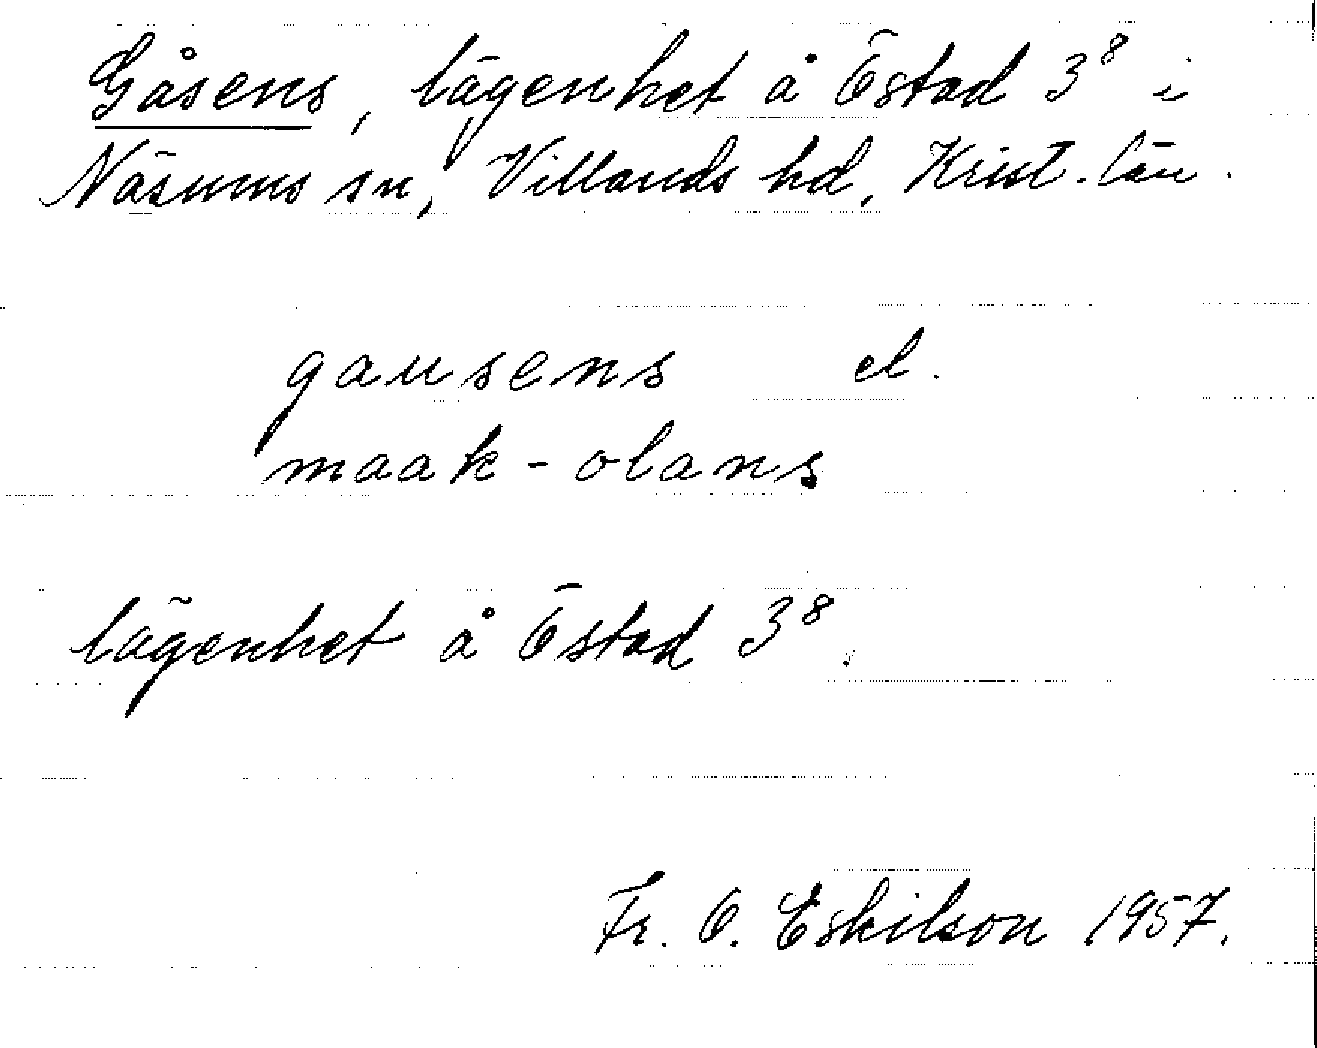 Gåsens, lägenhet å Östad 3⁸ i
Näsums sn, Villands hd, Krist. län.
gausens el.
maak-olans
lägenhet å Östad 3⁸.
Fr. O. Eskilson 1957.